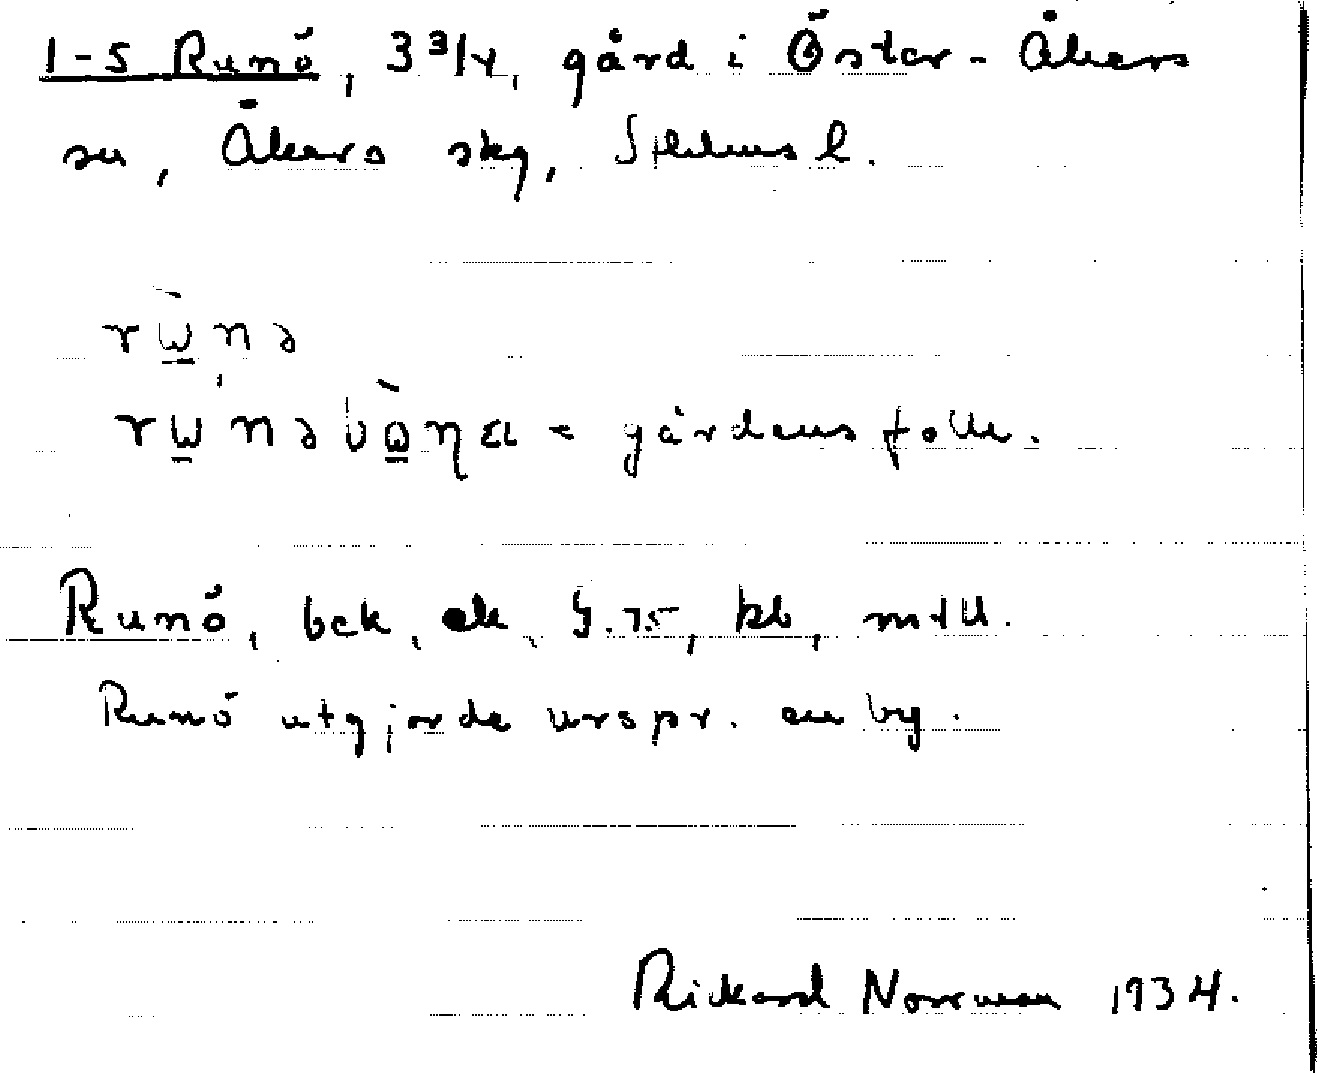 1-5 Runö, 3 3/4, gård i Öster-Åkers
sn, Åkers skg, Sthlms l.
rùnə
= gårdens folk.
Runö, bck, ek, J. 75, kb, mtl.
Runö utgjorde urspr. en by.
Rickard Norrman 1934.